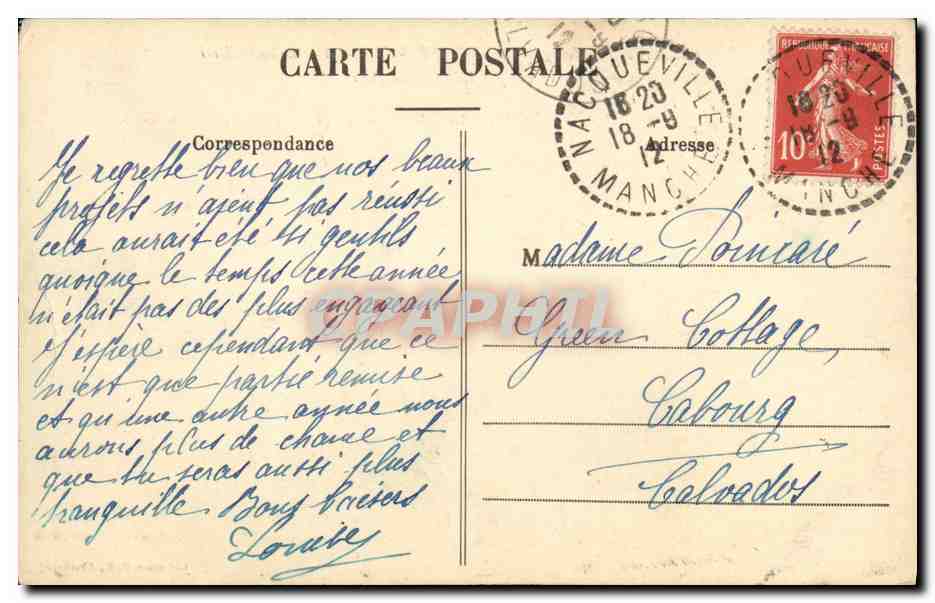 CARTE POSTALE
Correspondance
Adresse
Je regrette bien que nos beaux
projets n'ajent pas réussi
cela aurait été si gentils
quoique le temps cette année
n'était pas des plus engageant
J'espère cependant que ce
n'est que partie remise
et qu'une autre année nous
aurons plus de chance et
que tu seras aussi plus
tranquille Bons baisers
Louise
Madame Poincaré
Green Cottage,
Cabourg
Calvados
NACQUEVILLE
18 20
18 -9
12
MANCHE
QUEVILLE
18 20
18 -9
12
MANCHE
REPUBLIQUE FRANÇAISE
10c
POSTES
CPAPHIL